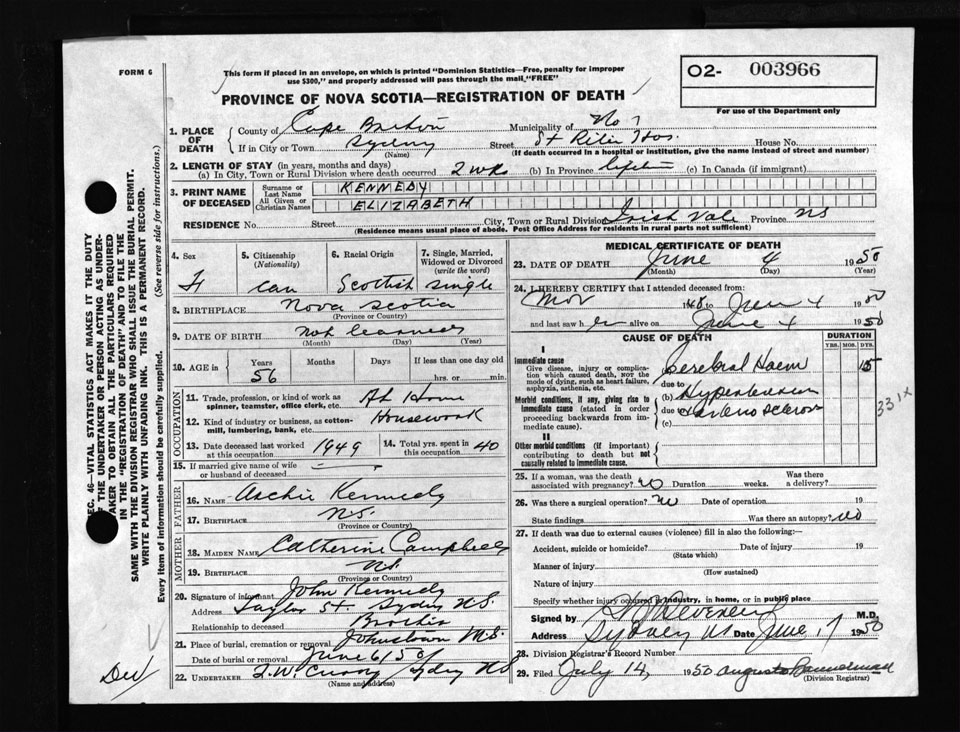 FORM 6
This form if placed in an envelope, on which is printed "Dominion Statistics—Free, penalty for improper
use $300," and properly addressed will pass through the mail "FREE"
PROVINCE OF NOVA SCOTIA—REGISTRATION OF DEATH
O2- 003966
For use of the Department only
1. PLACE OF DEATH
County of Cape Breton Municipality of No 7
If in City or Town Sydney Street St Rita Hos. House No.
(Name) (If death occurred in a hospital or institution, give the name instead of street and number)
2. LENGTH OF STAY (in years, months and days)
(a) In City, Town or Rural Division where death occurred 2 wks (b) In Province (c) In Canada (if immigrant)
3. PRINT NAME OF DECEASED
Surname or Last Name KENNEDY
All Given or Christian Names ELIZABETH
RESIDENCE No. Street City, Town or Rural Division Irish Vale Province NS
(Residence means usual place of abode. Post Office Address for residents in rural parts not sufficient)
4. Sex F
5. Citizenship (Nationality) can
6. Racial Origin Scottish
7. Single, Married, Widowed or Divorced (write the word) single
8. BIRTHPLACE Nova Scotia
(Province or Country)
9. DATE OF BIRTH not learned
(Month) (Day) (Year)
10. AGE in Years 56 Months Days If less than one day old
hrs. or min.
OCCUPATION
11. Trade, profession, or kind of work as spinner, teamster, office clerk, etc. At Home
12. Kind of industry or business, as cotton-mill, lumbering, bank, etc. Housework
13. Date deceased last worked at this occupation 1949
14. Total yrs. spent in this occupation 40
15. If married give name of wife or husband of deceased
FATHER
16. NAME Archie Kennedy
17. BIRTHPLACE N.S.
(Province or Country)
MOTHER
18. MAIDEN NAME Catherine Campbell
19. BIRTHPLACE N.S.
(Province or Country)
20. Signature of informant John Kennedy
Address Taylor St. Sydney N.S.
Relationship to deceased Brother
21. Place of burial, cremation or removal Johnstown N.S.
Date of burial or removal June 6/50
22. UNDERTAKER Sydney NS
(Name and address)
MEDICAL CERTIFICATE OF DEATH
23. DATE OF DEATH June 4 1950
(Month) (Day) (Year)
24. I HEREBY CERTIFY that I attended deceased from:
Nov 1948 June 4 1950
and last saw her alive on June 4 1950
CAUSE OF DEATH
DURATION
YRS. MOS. DYS.
I
Immediate cause
Give disease, injury or complication which caused death, not the mode of dying, such as heart failure, asphyxia, asthenia, etc.
Cerebral Haem 15
due to
(b) Hypertension
Morbid conditions, if any, giving rise to immediate cause (stated in order proceeding backwards from immediate cause).
due to Arteriosclerosis
(c)
331x
II
Other morbid conditions (if important) contributing to death but not causally related to immediate cause.
25. If a woman, was the death associated with pregnancy? no Duration weeks. Was there a delivery?
26. Was there a surgical operation? no Date of operation 19
State findings Was there an autopsy? no
27. If death was due to external causes (violence) fill in also the following:
Accident, suicide or homicide? Date of injury 19
(State which)
Manner of injury
(How sustained)
Nature of injury
Specify whether injury occurred in industry, in home, or in public place
Signed by M.D.
Address Sydney NS Date June 17 1950
28. Division Registrar's Record Number
29. Filed July 14, 1950 Augusta Bannerman
(Division Registrar)
SEC. 46—VITAL STATISTICS ACT MAKES IT THE DUTY
OF THE UNDERTAKER OR PERSON ACTING AS UNDER-
TAKER TO OBTAIN ALL THE PARTICULARS REQUIRED
IN THE "REGISTRATION OF DEATH" AND TO FILE THE
SAME WITH THE DIVISION REGISTRAR WHO SHALL ISSUE THE BURIAL PERMIT.
WRITE PLAINLY WITH UNFADING INK. THIS IS A PERMANENT RECORD.
Every item of information should be carefully supplied. (See reverse side for instructions.)